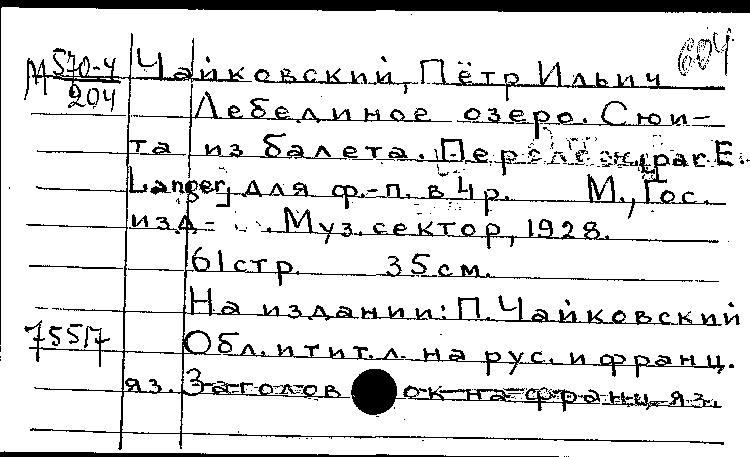 М 570-4/204 Чайковский, Пётр Ильич 604
Лебединое озеро. Сюи-
та из балета.
Langer] для ф.-п. в 4 р. М., Гос.
изд- . Муз. сектор, 1928.
61 стр. 35 см.
На издании: П. Чайковский
75517 Обл. и тит. л. на рус. и франц.
яз. Заголовок на франц. яз.